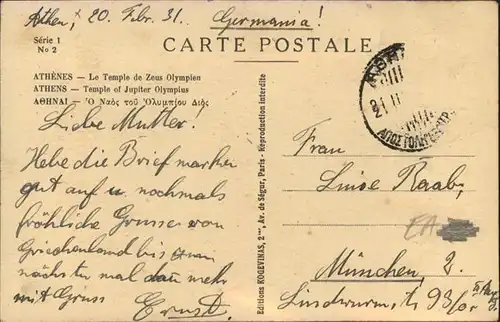 Athen, 20. Febr. 31.
Germania!
Série 1
No 2
CARTE POSTALE
ATHÈNES – Le Temple de Zeus Olympien
ATHENS – Temple of Jupiter Olympius
ΑΘΗΝΑΙ – Ὁ Ναὸς τοῦ Ὀλυμπίου Διὸς
Liebe Mutter!
Hebe die Briefmarken
gut auf u nochmals
fröhliche Grüsse von
Griechenland bis zum
nächsten mal dann mehr
mit Gruss
Ernst.
Editions KOGEVINAS, 2, Av. de Ségur, Paris - Reproduction interdite
21 II
Frau
Luise Raab,
München, 2.
Lindwurmstr 93/0r